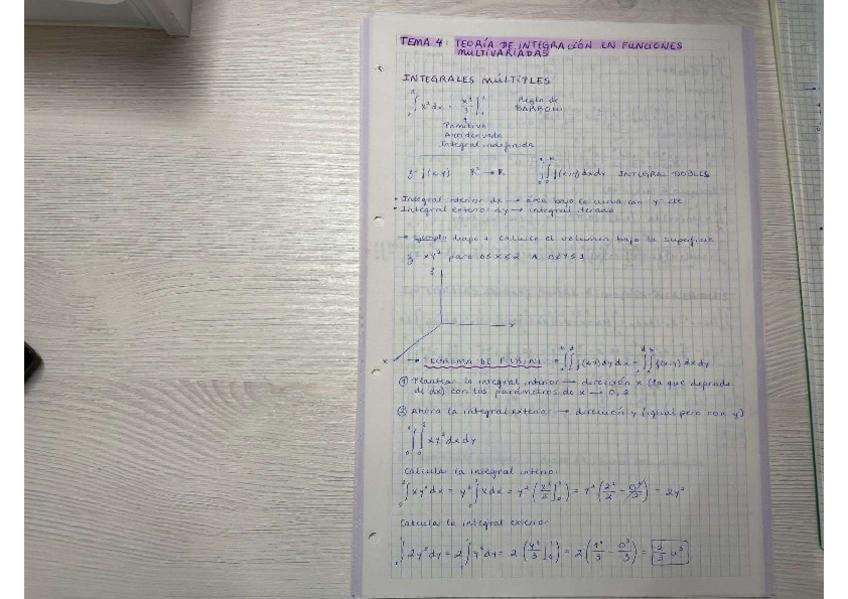 TEMA 4: TEORÍA DE INTEGRACIÓN EN FUNCIONES
MULTIVARIADAS
INTEGRALES MÚLTIPLES
∫ x² dx = x³/3 | Regla de
BARROW
Primitiva
Antiderivada
Integral indefinida
z = f(x,y) R² → R ∫∫ f(x,y) dx dy INTEGRAL DOBLES
• Integral interior dx → área bajo la curva con y = cte
• Integral exterior dy → integral iterada
→ Ejemplo diapo 4 calcular el volumen bajo la superficie
z = xy² para 0 ≤ x ≤ 2 ∧ 0 ≤ y ≤ 1
z
y
x
→ TEOREMA DE FUBINI = ∫∫ f(x,y) dy dx = ∫∫ f(x,y) dx dy
① Plantear la integral interior → dirección x (la que depende
de dx) con los parámetros de x → 0, 2
② Ahora la integral exterior → dirección y (igual pero con y)
∫₀¹ ∫₀² xy² dx dy
Calcular la integral interior
∫₀² xy² dx = y² ∫₀² x dx = y² (x²/2 ]₀²) = y² (2²/2 - 0²/2) = 2y²
Calcular la integral exterior
∫₀¹ 2y² dy = 2 ∫₀¹ y² dy = 2 (y³/3 ]₀¹) = 2 (1³/3 - 0³/3) = 2/3 u³